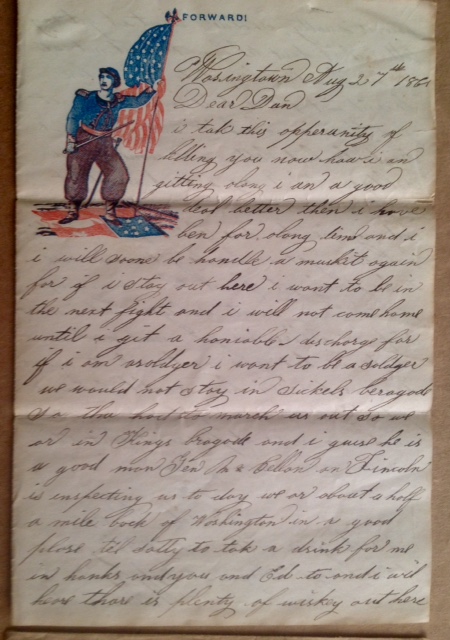 FORWARD!
Wosingtown Aug 27th 1861
Dear Dan
i tak this opperunity of
telling you now how i am
gitting along i am a good
deal better then i have
ben for along time and i
i will soone be hondle a muskit again
for if i stay out here i want to be in
the next fight and i will not come home
until i git a honiable discharge for
if i am a soldger i want to be a soldger
we would not stay in Sickels beragode
so tha had to march us out so we
ar in Kings bragode and i guese he is
a good man Jen Mc Cellon an Lincoln
is inspecting us to day we ar about a half
a mile back of Washington in a good
plase tel to tak a drink for me
in hanks and you and Ed to and i will
hare thare is plenty of wiskey out here